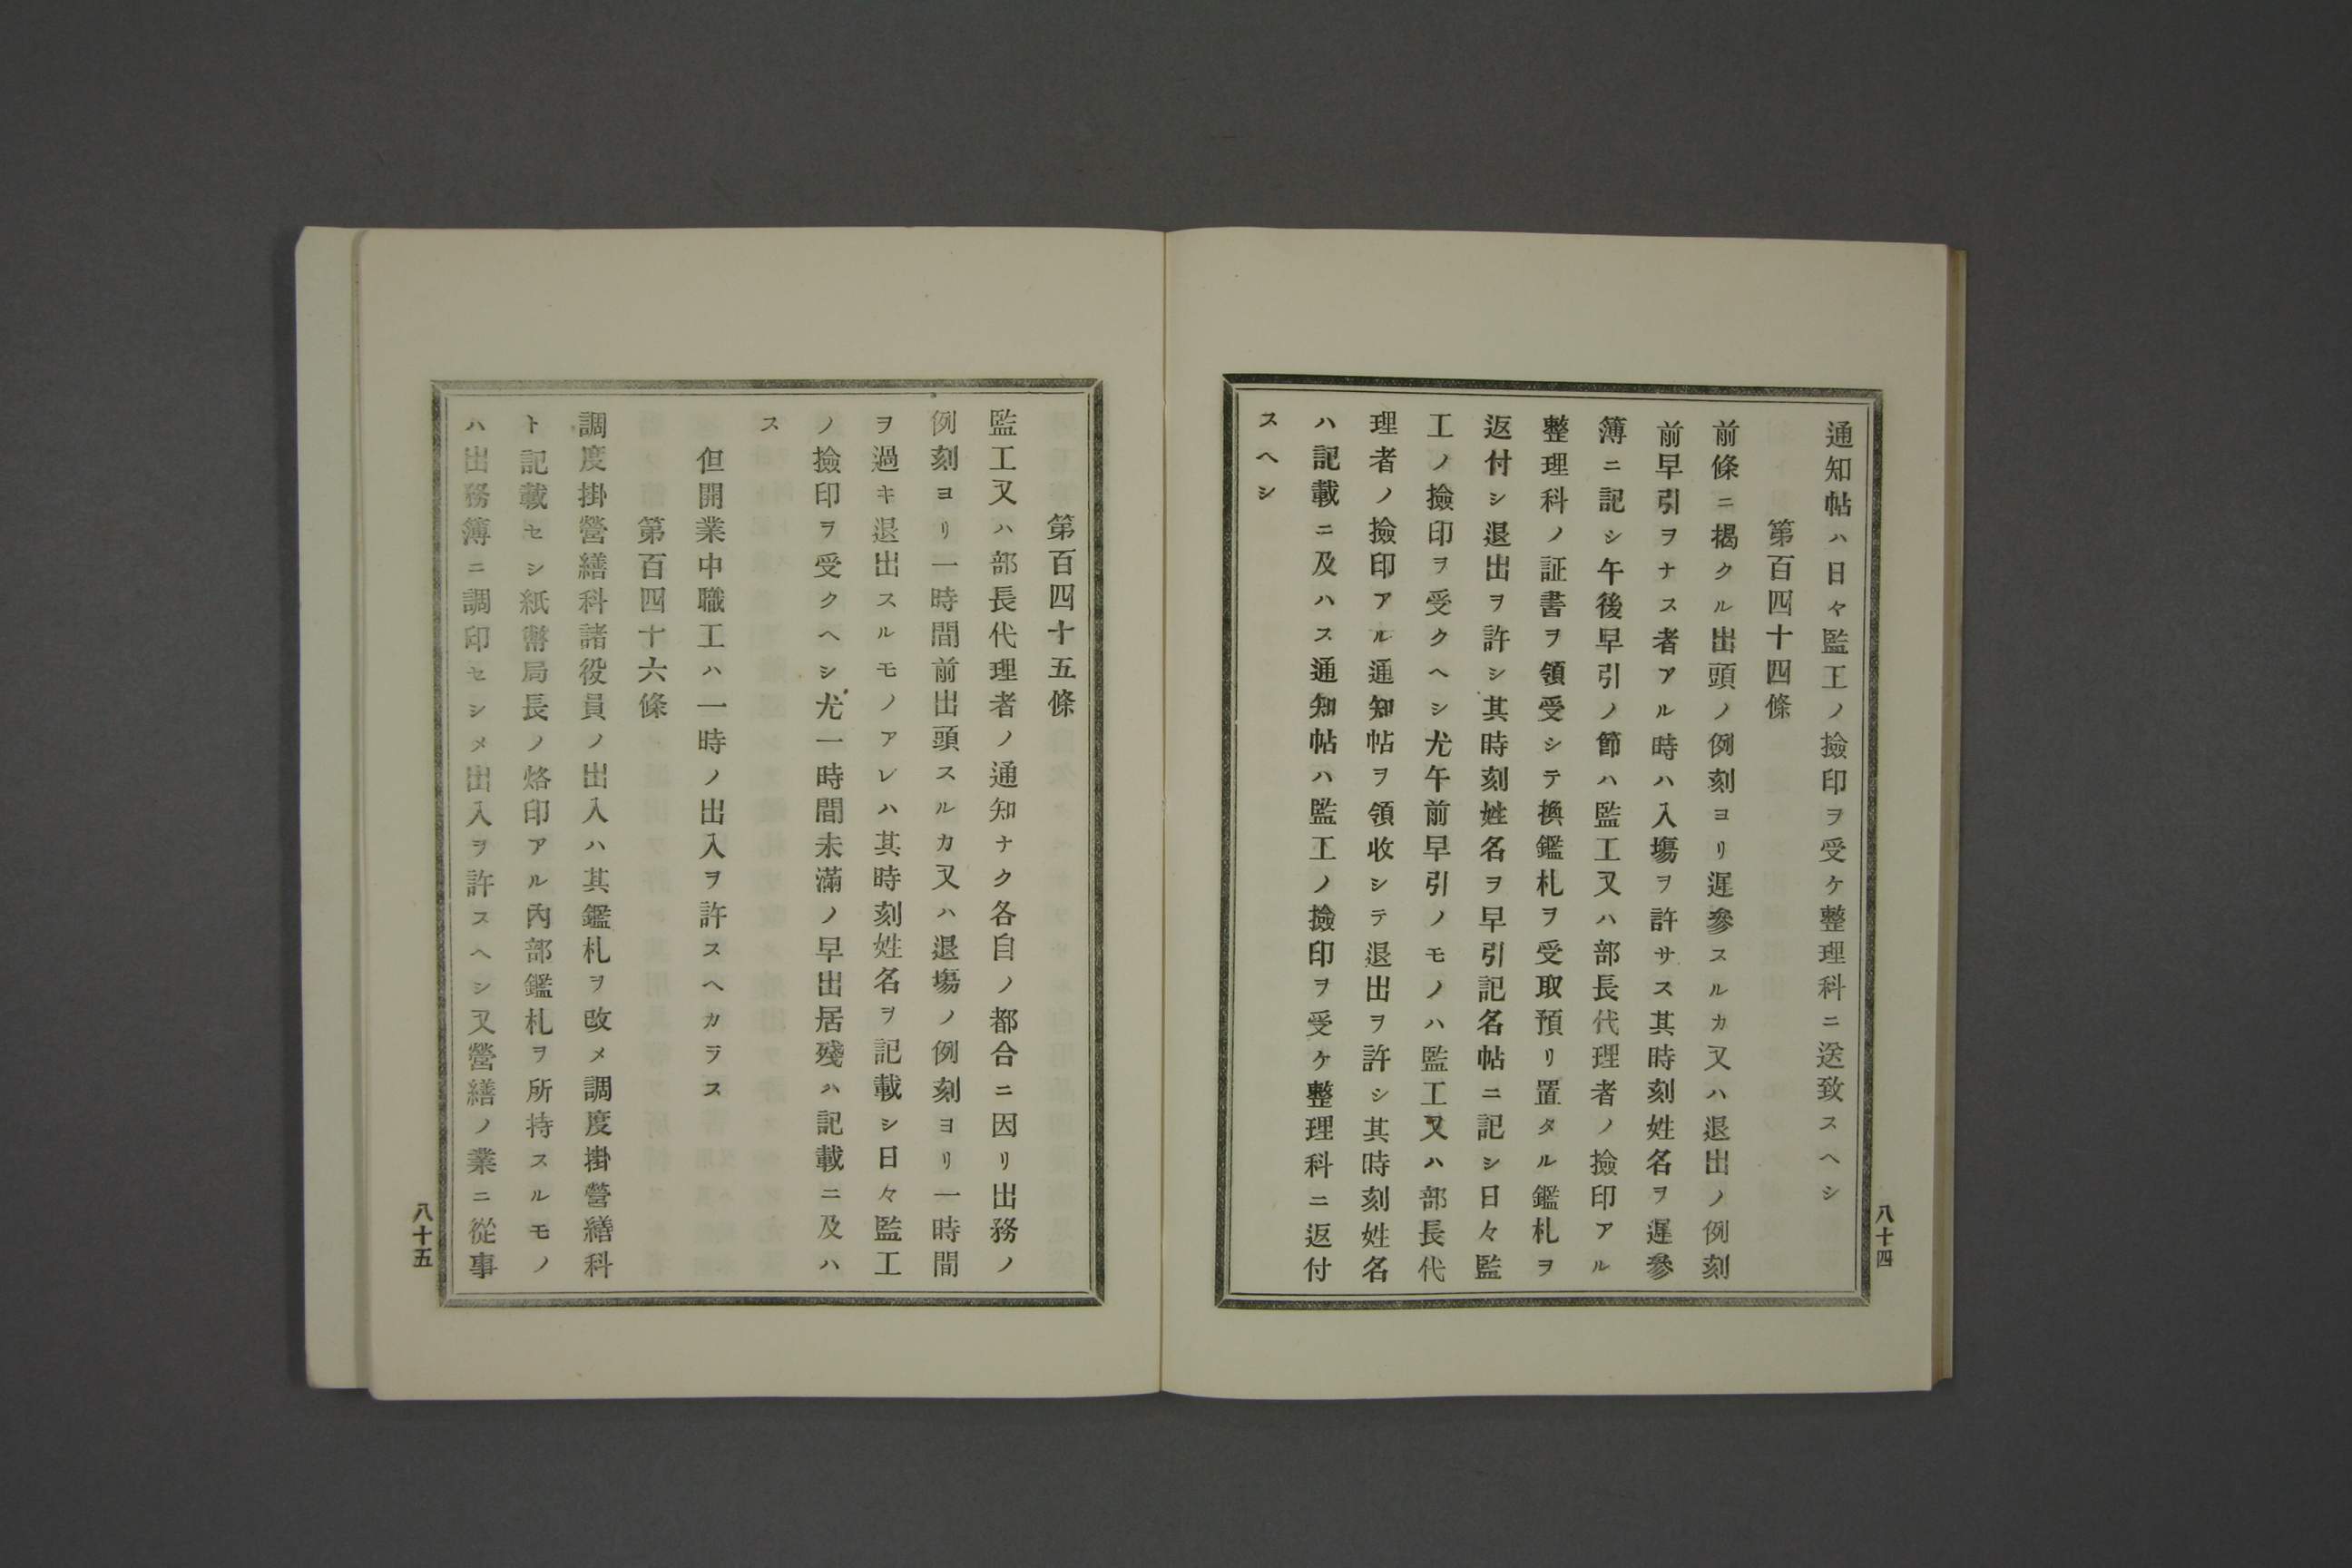 通知帖ハ日々監工ノ撿印ヲ受ケ整理科ニ送致スヘシ
第百四十四條
前條ニ揭クル出頭ノ例刻ヨリ遲參スルカ又ハ退出ノ例刻
前早引ヲナス者アル時ハ入塲ヲ許サス其時刻姓名ヲ遲參
簿ニ記シ午後早引ノ節ハ監工又ハ部長代理者ノ撿印アル
整理科ノ証書ヲ領受シテ換鑑札ヲ受取預リ置タル鑑札ヲ
返付シ退出ヲ許シ其時刻姓名ヲ早引記名帖ニ記シ日々監
工ノ撿印ヲ受クヘシ尤午前早引ノモノハ監工又ハ部長代
理者ノ撿印アル通知帖ヲ領收シテ退出ヲ許シ其時刻姓名
ハ記載ニ及ハス通知帖ハ監工ノ撿印ヲ受ケ整理科ニ返付
スヘシ
八十四
第百四十五條
監工又ハ部長代理者ノ通知ナク各自ノ都合ニ因リ出務ノ
例刻ヨリ一時間前出頭スルカ又ハ退塲ノ例刻ヨリ一時間
ヲ過キ退出スルモノアレハ其時刻姓名ヲ記載シ日々監工
ノ撿印ヲ受クヘシ尤一時間未滿ノ早出居殘ハ記載ニ及ハ
ス
但開業中職工ハ一時ノ出入ヲ許スヘカラス
第百四十六條
調度掛營繕科諸役員ノ出入ハ其鑑札ヲ改メ調度掛營繕科
ト記載セシ紙幣局長ノ烙印アル內部鑑札ヲ所持スルモノ
ハ出務簿ニ調印セシメ出入ヲ許スヘシ又營繕ノ業ニ從事
八十五